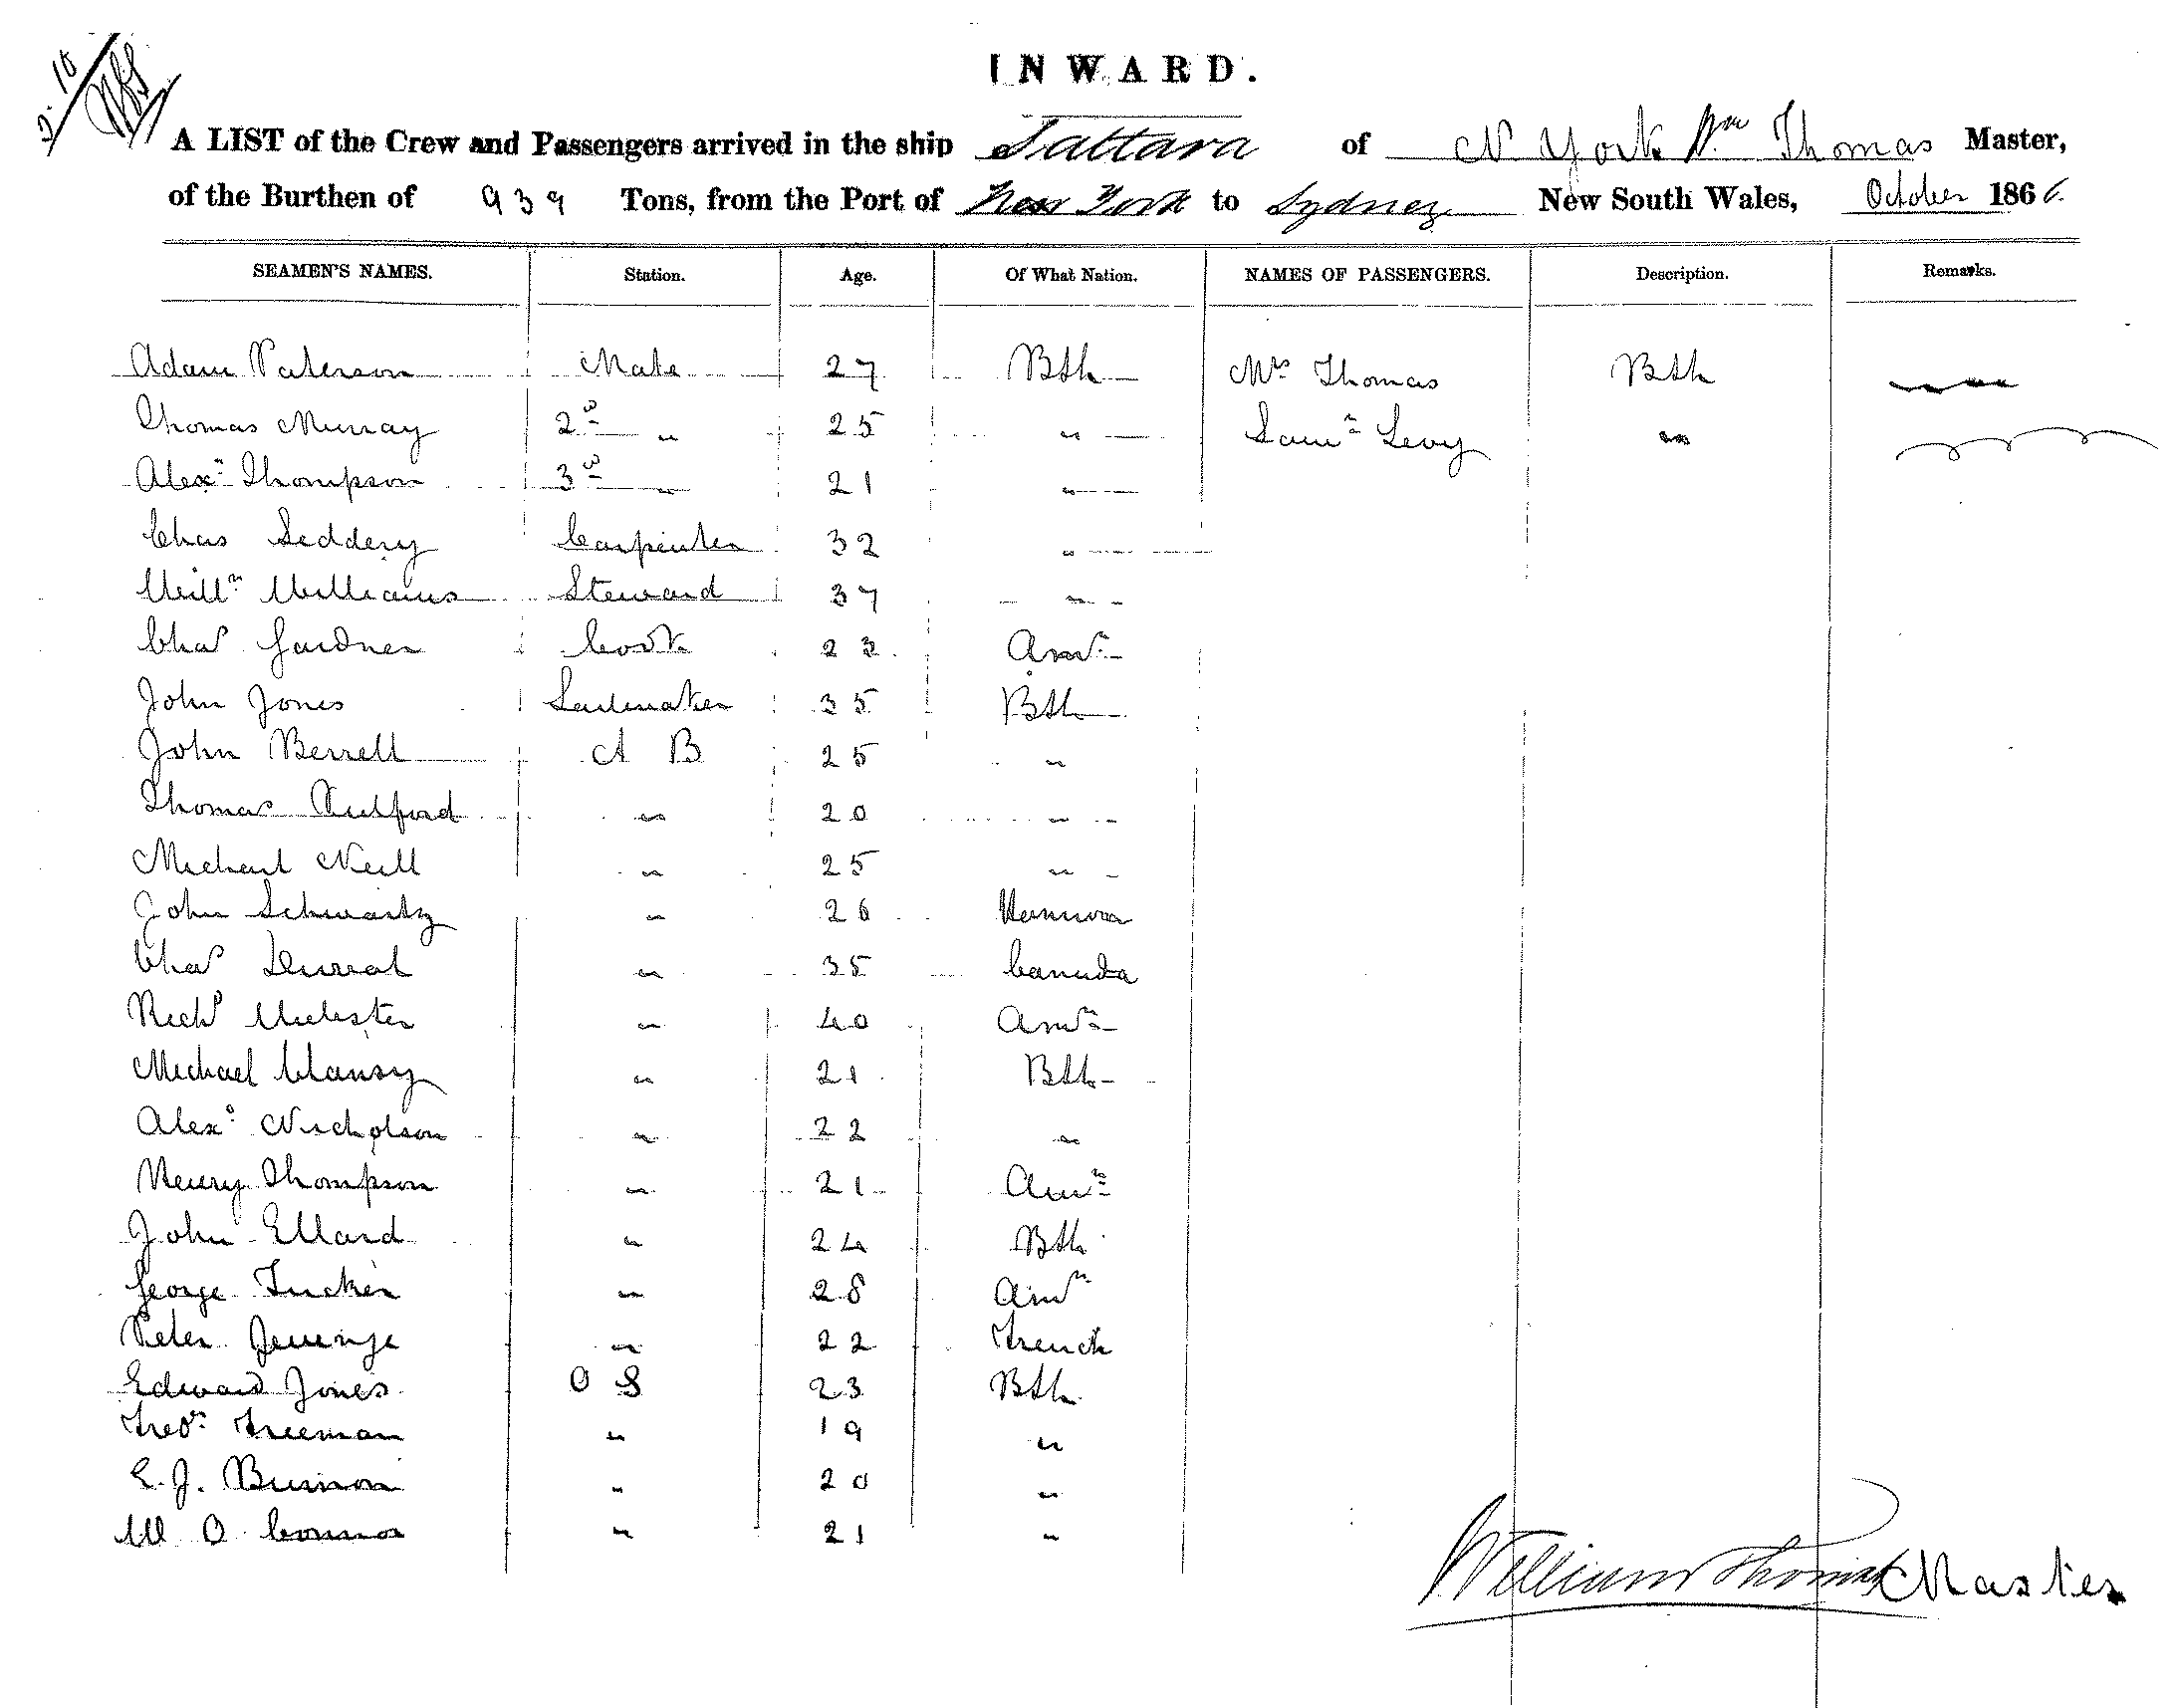 2.10
INWARD.
A LIST of the Crew and Passengers arrived in the ship Sattara of N York Wm Thomas Master,
of the Burthen of 939 Tons, from the Port of New York to Sydney New South Wales, October 1866.
SEAMEN'S NAMES. Station. Age. Of What Nation. NAMES OF PASSENGERS. Description. Remarks.
Adam Paterson Mate 27 Bth Mrs Thomas Bth
Thomas Murray 2d " 25 " Saml Levy "
Alexr Thompson 3d " 21 "
Chas Seddery Carpenter 32 "
Willm Williams Steward 37 "
Chas Gardner Cook 23 Amn
John Jones Sailmaker 35 Bth
John Berrell A B 25 "
Thomas " 20 "
Michael Neill " 25 "
John Schwartz " 26 Hanover
Chas Durrah " 35 Canada
Richd Webster " 40 Amn
Michael Clansy " 21 Bth
Alexr Nicholson " 22 "
Henry Thompson " 21 Amn
John Ellard " 24 Bth
George Tucker " 28 Amn
Peter " 22 French
Edward Jones O S 23 Bth
Fredk Freeman " 19 "
E. J. " 20 "
W O Connor " 21 "
William Thomas Master